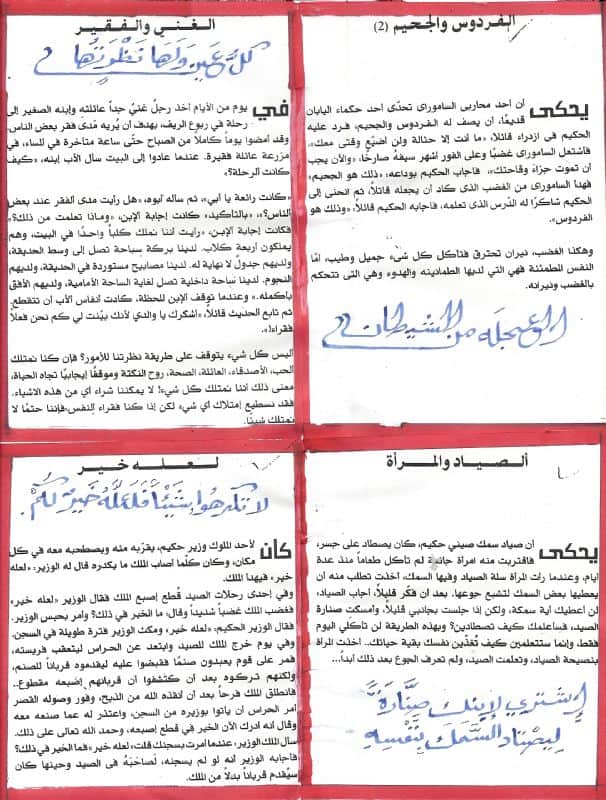 الفردوس والجحيم (2)
يحكى أن احد محاربي الساموراى تحدّى أحد حكماء اليابان
قديمًا، أن يصف له الفردوس والجحيم، فرد عليه
الحكيم فى ازدراء قائلاً، «ما أنت إلا حثالة ولن اضيّع وقتى معك»،
فاشتعل الساموراى غضبًا وعلى الفور أشهر سيفهُ صارخًا، «والآن يجب
أن تموت جزاءً وقاحتك»، فأجاب الحكيم بوداعه، «ذلك هو الجحيم»،
فهدأ الساموراى من الغضب الذى كاد أن يجعله قاتلاً، ثم انحنى إلى
الحكيم شاكرًا له الدّرس الذى تعلمه، فأجابه الحكيم قائلاً، «وذلك هو
الفردوس».
وهكذا الغضب، نيران تحترق فتأكل كل شىء جميل وطيب، أمّا
النفس المطمئنة فهي التي لديها الطمأنينه والهدوء وهى التى تتحكم
بالغضب ونيرانه.
العجله من الشيطان
الغني والفقير
كلُّ عين ولها نظرتها
في يوم من الأيام أخذ رجلٌ غنيٌ جداً عائلته وإبنه الصغير إلى
رحلة في ربوع الريف، بهدف أن يُريه مدى فقر بعض الناس.
وقد أمضوا يوماً كاملاً من الصباح حتّى ساعة متأخرة في المساء، في
مزرعة عائلة فقيرة. عندما عادوا إلى البيت سأل الأب إبنه، «كيف
كانت الرحلة؟»
«كانت رائعة يا أبي»، ثم سأله أبوه، «هل رأيت مدى الفقر عند بعض
الناس؟»، «بالتأكيد» كانت إجابة الإبن، «وماذا تعلمت من ذلك؟»
فكانت إجابة الإبن، «رأيت أننا نملك كلباً واحدًا في البيت، وهم
يملكون أربعة كلاب. لدينا بركة سباحة تصل إلى وسط الحديقة،
ولديهم جدولٌ لا نهاية له. لدينا مصابيح مستوردة في الحديقة، ولديهم
النجوم. لدينا ساحة داخلية تصل لغاية الساحة الأمامية، ولديهم الأفق
بأكمله.» وعندما توقف الإبن للحظة، كادت أنفاس الأب أن تنقطع
ثم تابع الحديث قائلاً، «أشكرك يا والدي لأنك بيّنت لي كم نحن فعلاً
فقراء!»
أليس كل شيء يتوقف على طريقة نظرتنا للأمور؟ فإن كنا نمتلك
الحب، الأصدقاء، العائلة، الصحة، روح النكتة وموقفًا إيجابيًا تجاه الحياة،
معنى ذلك أننا نمتلك كل شيء! لا يمكننا شراء أي من هذه الأشياء.
فقد نستطيع إمتلاك أي شيء لكن إذا كنا فقراء النفس-فإننا حتمًا لا
نمتلك شيئًا.
ألصياد والمرأة
يحكى أن صياد سمك صيني حكيم، كان يصطاد على جسر،
فاقتربت منه امرأة جائعة لم تأكل طعاماً منذ عدة
أيام، وعندما رأت المرأة سلة الصياد وفيها السمك، أخذت تطلب منه أن
يعطيها بعض السمك لتشبع جوعها. بعد أن فكّر قليلاً، أجاب الصياد،
لن أعطيك أية سمكة، ولكن إذا جلست بجانبي قليلاً، وأمسكت صنارة
الصيد، فسأعلمك كيف تصطادين؟ وبهذه الطريقة لن تأكلي اليوم
فقط، وإنما ستتعلمين كيف تُغذّين نفسك بقية حياتك.. أخذت المرأة
بنصيحة الصياد، وتعلمت الصيد، ولم تعرف الجوع بعد ذلك أبداً...
إشتري لإبنك صنّارةً
ليصتاد السّمك بنفسه
لـعـلـه خـيـر
لا تكرهوا شيئاً فلعلّهُ خيرٌ لكم.
كان لأحد الملوك وزير حكيم، يقرّبه منه ويصطحبه معه في كل
مكان، وكان كلّما أصاب الملك ما يكدره قال له الوزير: «لعله
خير» فيهدأ الملك.
وفي إحدى رحلات الصيد قُطع إصبع الملك فقال الوزير «لعله خير»
فغضب الملك غضباً شديداً وقال، ما الخير في ذلك؟ وأمر بحبس الوزير.
فقال الوزير الحكيم، «لعله خير»، ومكث الوزير فترة طويلة في السجن.
وفي يوم خرج الملك للصيد وابتعد عن الحراس ليتعقب فريسته،
فمر على قوم يعبدون صنمًا فقبضوا عليه ليقدموه قرباناً للصنم،
ولكنهم تركوه بعد أن كتشفوا أن قربانهم إصبعه مقطوع..
فانطلق الملك فرحاً بعد أن أنقذه الله من الذبح، وفور وصوله القصر
أمر الحراس أن يأتوا بوزيره من السجن، واعتذر له عما صنعه معه
وقال أنه أدرك الآن الخير في قطع إصبعه، وحمد الله تعالى على ذلك.
سأل الملك الوزير، عندما أمرت بسجنك قلت، «لعله خير» فما الخير في ذلك؟
فأجابه الوزير أنه لو لم يسجنه، لصاحَبَهُ فى الصيد وحينها كان
سيُقدم قرباناً بدلاً من الملك.